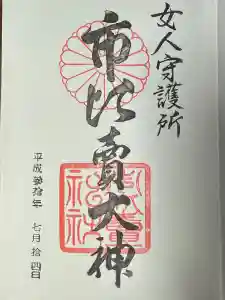 女人守護所
市比賣大神
平成参拾年 七月 拾四日